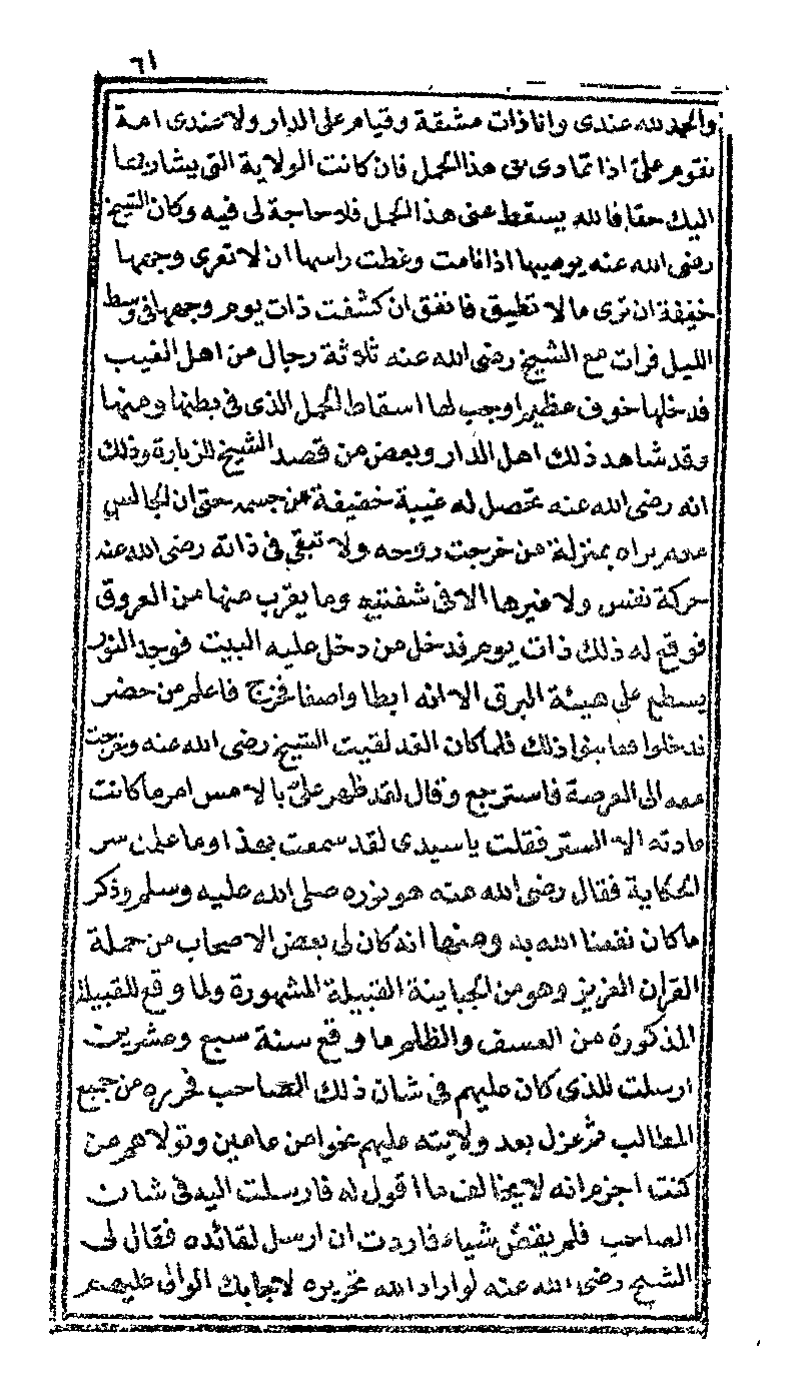 ٦١
والحمد لله عندى وانا ذات مشقة وقيام على الدار ولا عندى امة
تقوم علىّ اذا تمادى بى هذا الحمل فان كانت الولاية التى يشار بها
اليك حقا فالله يسقط عنى هذا الحمل فلا حاجة لى فيه وكان الشيخ
رضى الله عنه يوصيها اذا نامت وغطت راسها ان لا تعرى وجهها
خيفة ان ترى ما لا تطيق فاتفق ان كشفت ذات يوم وجهها فى وسط
الليل فرات مع الشيخ رضى الله عنه ثلاثة رجال من اهل الغيب
فدخلها خوف عظيم اوجب لها اسقاط الحمل الذى فى بطنها ومنها
وقد شاهد ذلك اهل الدار وبعض من قصد الشيخ للزيارة وذلك
انه رضى الله عنه تحصل له غيبة خفيفة عن جسمه حتى ان الجالس
معه يراه بمنزلة من خرجت روحه ولا تبقى فى ذاته رضى الله عنه
حركة نفس ولا غيرها الا فى شفتيه وما يقرب منها من العروق
فوقع له ذلك ذات يوم فدخل من دخل عليه البيت فوجد النور
يسطع على هيئة البرق الا انه ابطا واصفا فخرج فاعلم من حضر
فدخلوا فعاينوا ذلك فلما كان الغد لقيت الشيخ رضى الله عنه وخرجت
معه الى العرصة فاسترجع وقال لقد ظهر علىّ بالامس امر ما كانت
عادته الا الستر فقلت يا سيدى لقد سمعت بهذا وما علمت سر
الحكاية فقال رضى الله عنه هو نوره صلى الله عليه وسلم وذكر
ما كان نفعنا الله به ومنها انه كان لى بعض الاصحاب من حملة
القران العزيز وهو من الحباينة القبيلة المشهورة ولما وقع للقبيلة
المذكورة من العسف والظلم ما وقع سنة سبع وعشرين
ارسلت للذى كان عليهم فى شان ذلك الصاحب فحرره من جميع
المطالب ثم عزل بعد ولايته عليهم نحوا من عامين وتولاهم من
كنت اجزم انه لا يخالف ما اقول له فارسلت اليه فى شان
الصاحب فلم يقض شياء فاردت ان ارسل لقائده فقال لى
الشيخ رضى الله عنه لو اراد الله تحريره لاجابك الوالى عليهم